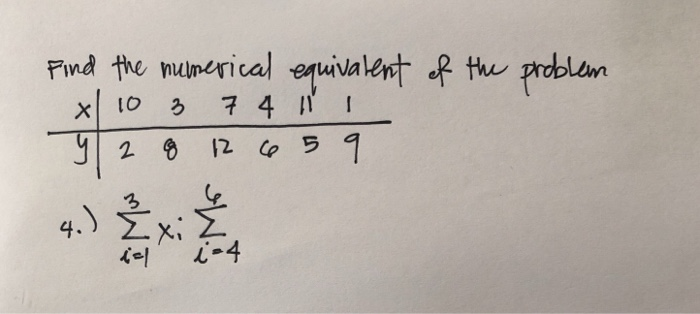 Find the numerical equivalent of the problem
x | 10 3 7 4 11 1
y | 2 8 12 6 5 9
4.) 3 Σ i=1 xi 6 Σ i=4